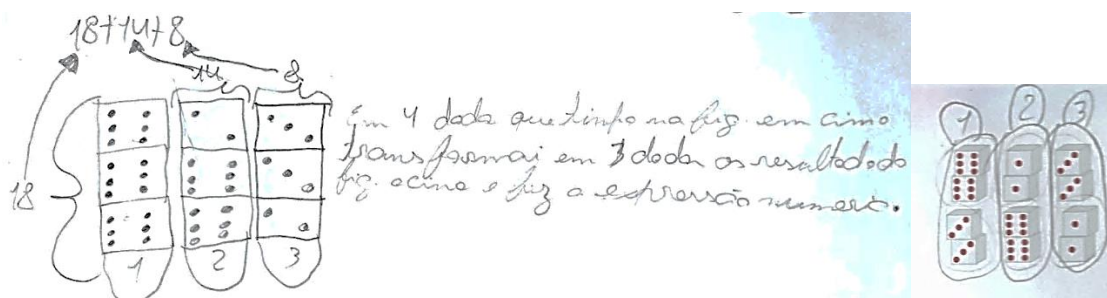 18+14+8
14 8
18
1 2 3
Em 4 dada que tinha na fig. em cima
transformai em 3 dada os resultado da
fig. acima e fiz a expressão numeris.
1 2 3